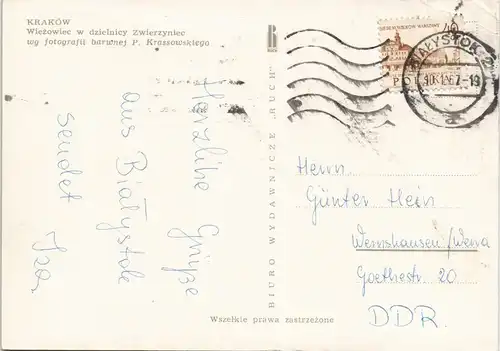 KRAKÓW
Wieżowiec w dzielnicy Zwierzyniec
wg fotografii barwnej P. Krassowskiego
Herzliche Grüße
aus Białystok
sendet Iza
BIURO WYDAWNICZE „RUCH"
BIAŁYSTOK
Herrn
Günter Hein
Wernshausen/Werra
Goethestr. 20
DDR.
Wszelkie prawa zastrzeżone